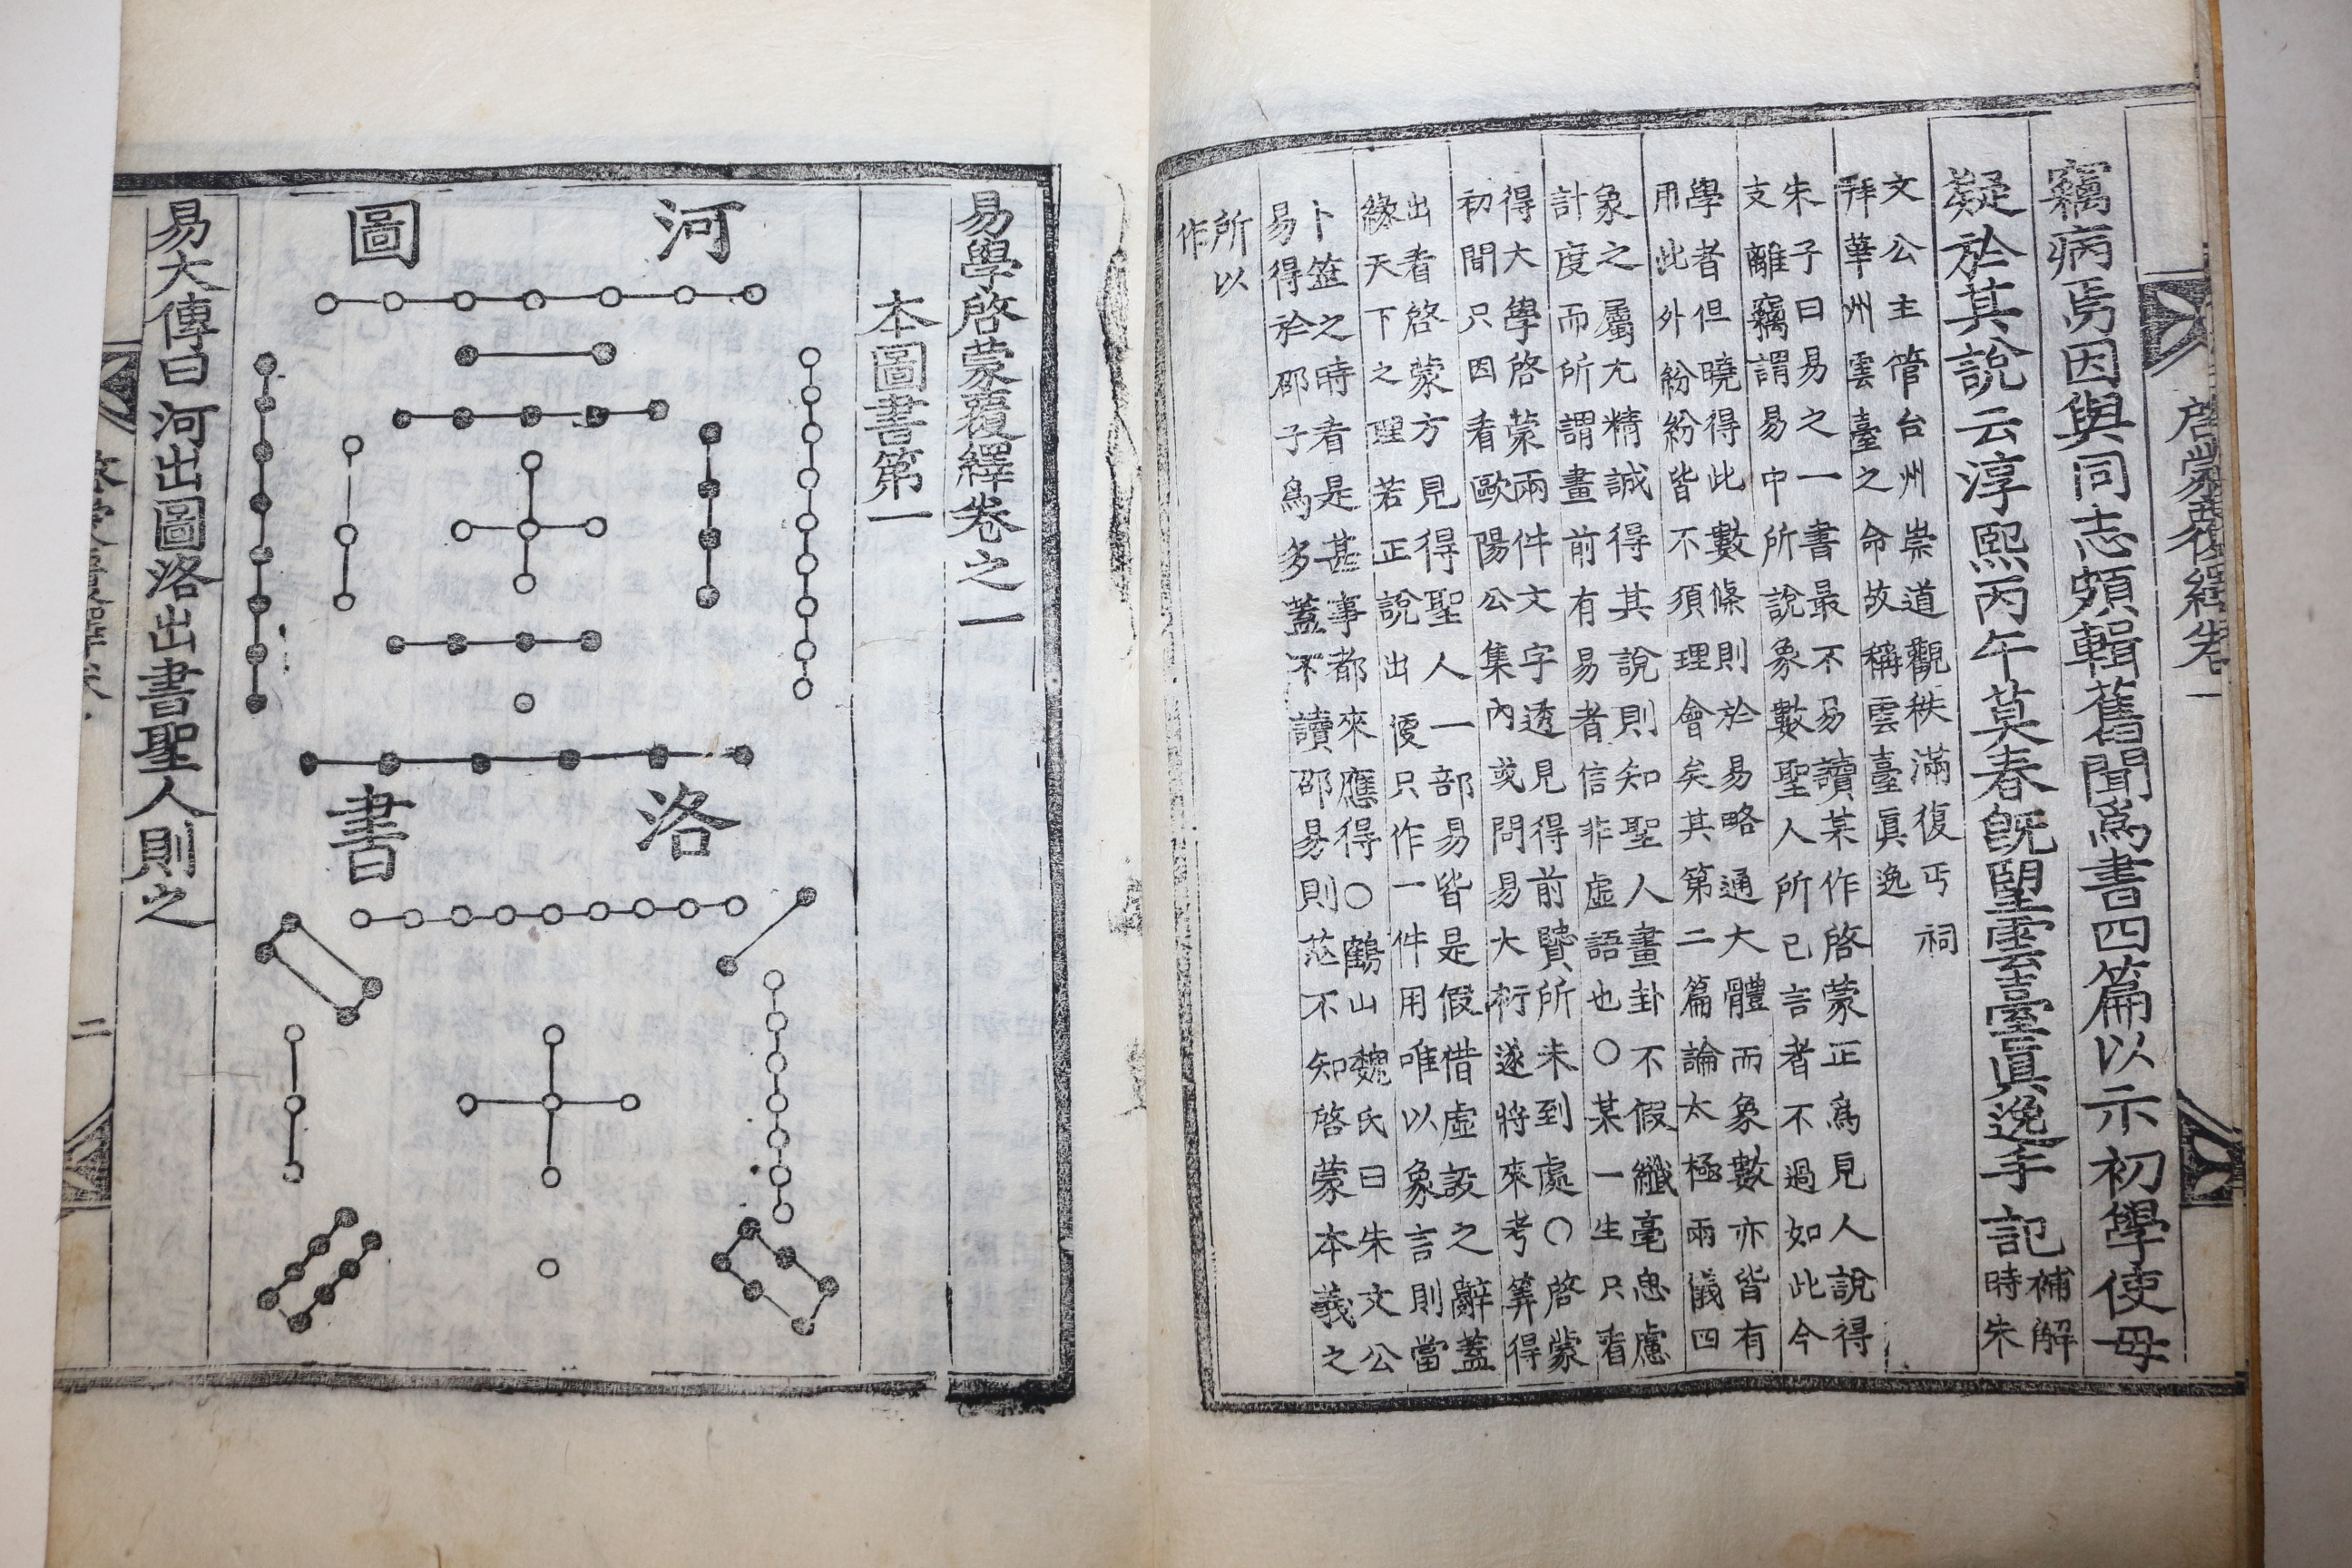 啓蒙覆繹卷一
竊病焉因與同志頗輯舊聞爲書四篇以示初學使毋
疑於其說云淳熙丙午莫春旣望雲臺眞逸手記
補解
時朱
文公主管台州崇道觀秩滿復丐祠
拜華州雲臺之命故稱雲臺眞逸
朱子曰易之一書最不易讀某作啓蒙正爲見人說得
支離竊謂易中所說象數聖人所已言者不過如此今
學者但曉得此數條則於易略通大體而象數亦皆有
用此外紛紛皆不須理會矣其第二篇論太極兩儀四
象之屬尤精誠得其說則知聖人畫卦不假纖毫思慮
計度而所謂畫前有易者信非虛語也○某一生只看
得大學啓蒙兩件文字透見得前賢所未到處○啓蒙
初間只因看歐陽公集內或問易大衍遂將來考筭得
出看啓蒙方見得聖人一部易皆是假借虛設之辭蓋
緣天下之理若正說出便只作一件用唯以象言則當
卜筮之時看是甚事都來應得○鶴山魏氏曰朱文公
易得於邵子爲多蓋不讀邵易則茫不知啓蒙本義之
所以
作
易學啓蒙覆繹卷之一
本圖書第一
河圖
洛書
易大傳曰河出圖洛出書聖人則之
二